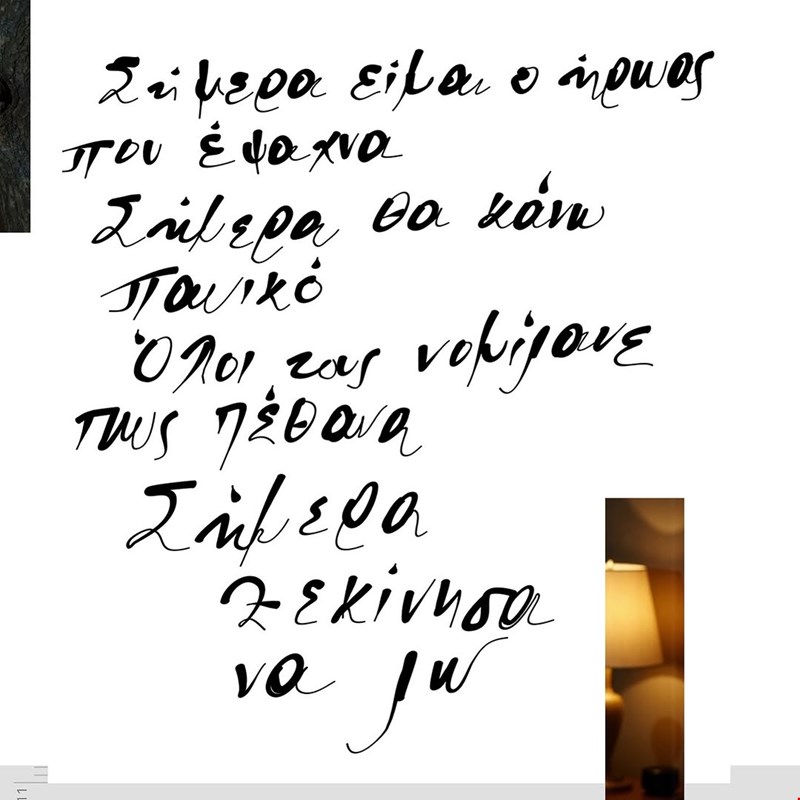 Σήμερα είμαι ο ήρωας
που έψαχνα
Σήμερα θα κάνω
πανικό
Όλοι τους νομίζανε
πως πέθανα
Σήμερα
ξεκίνησα
να ζω
11